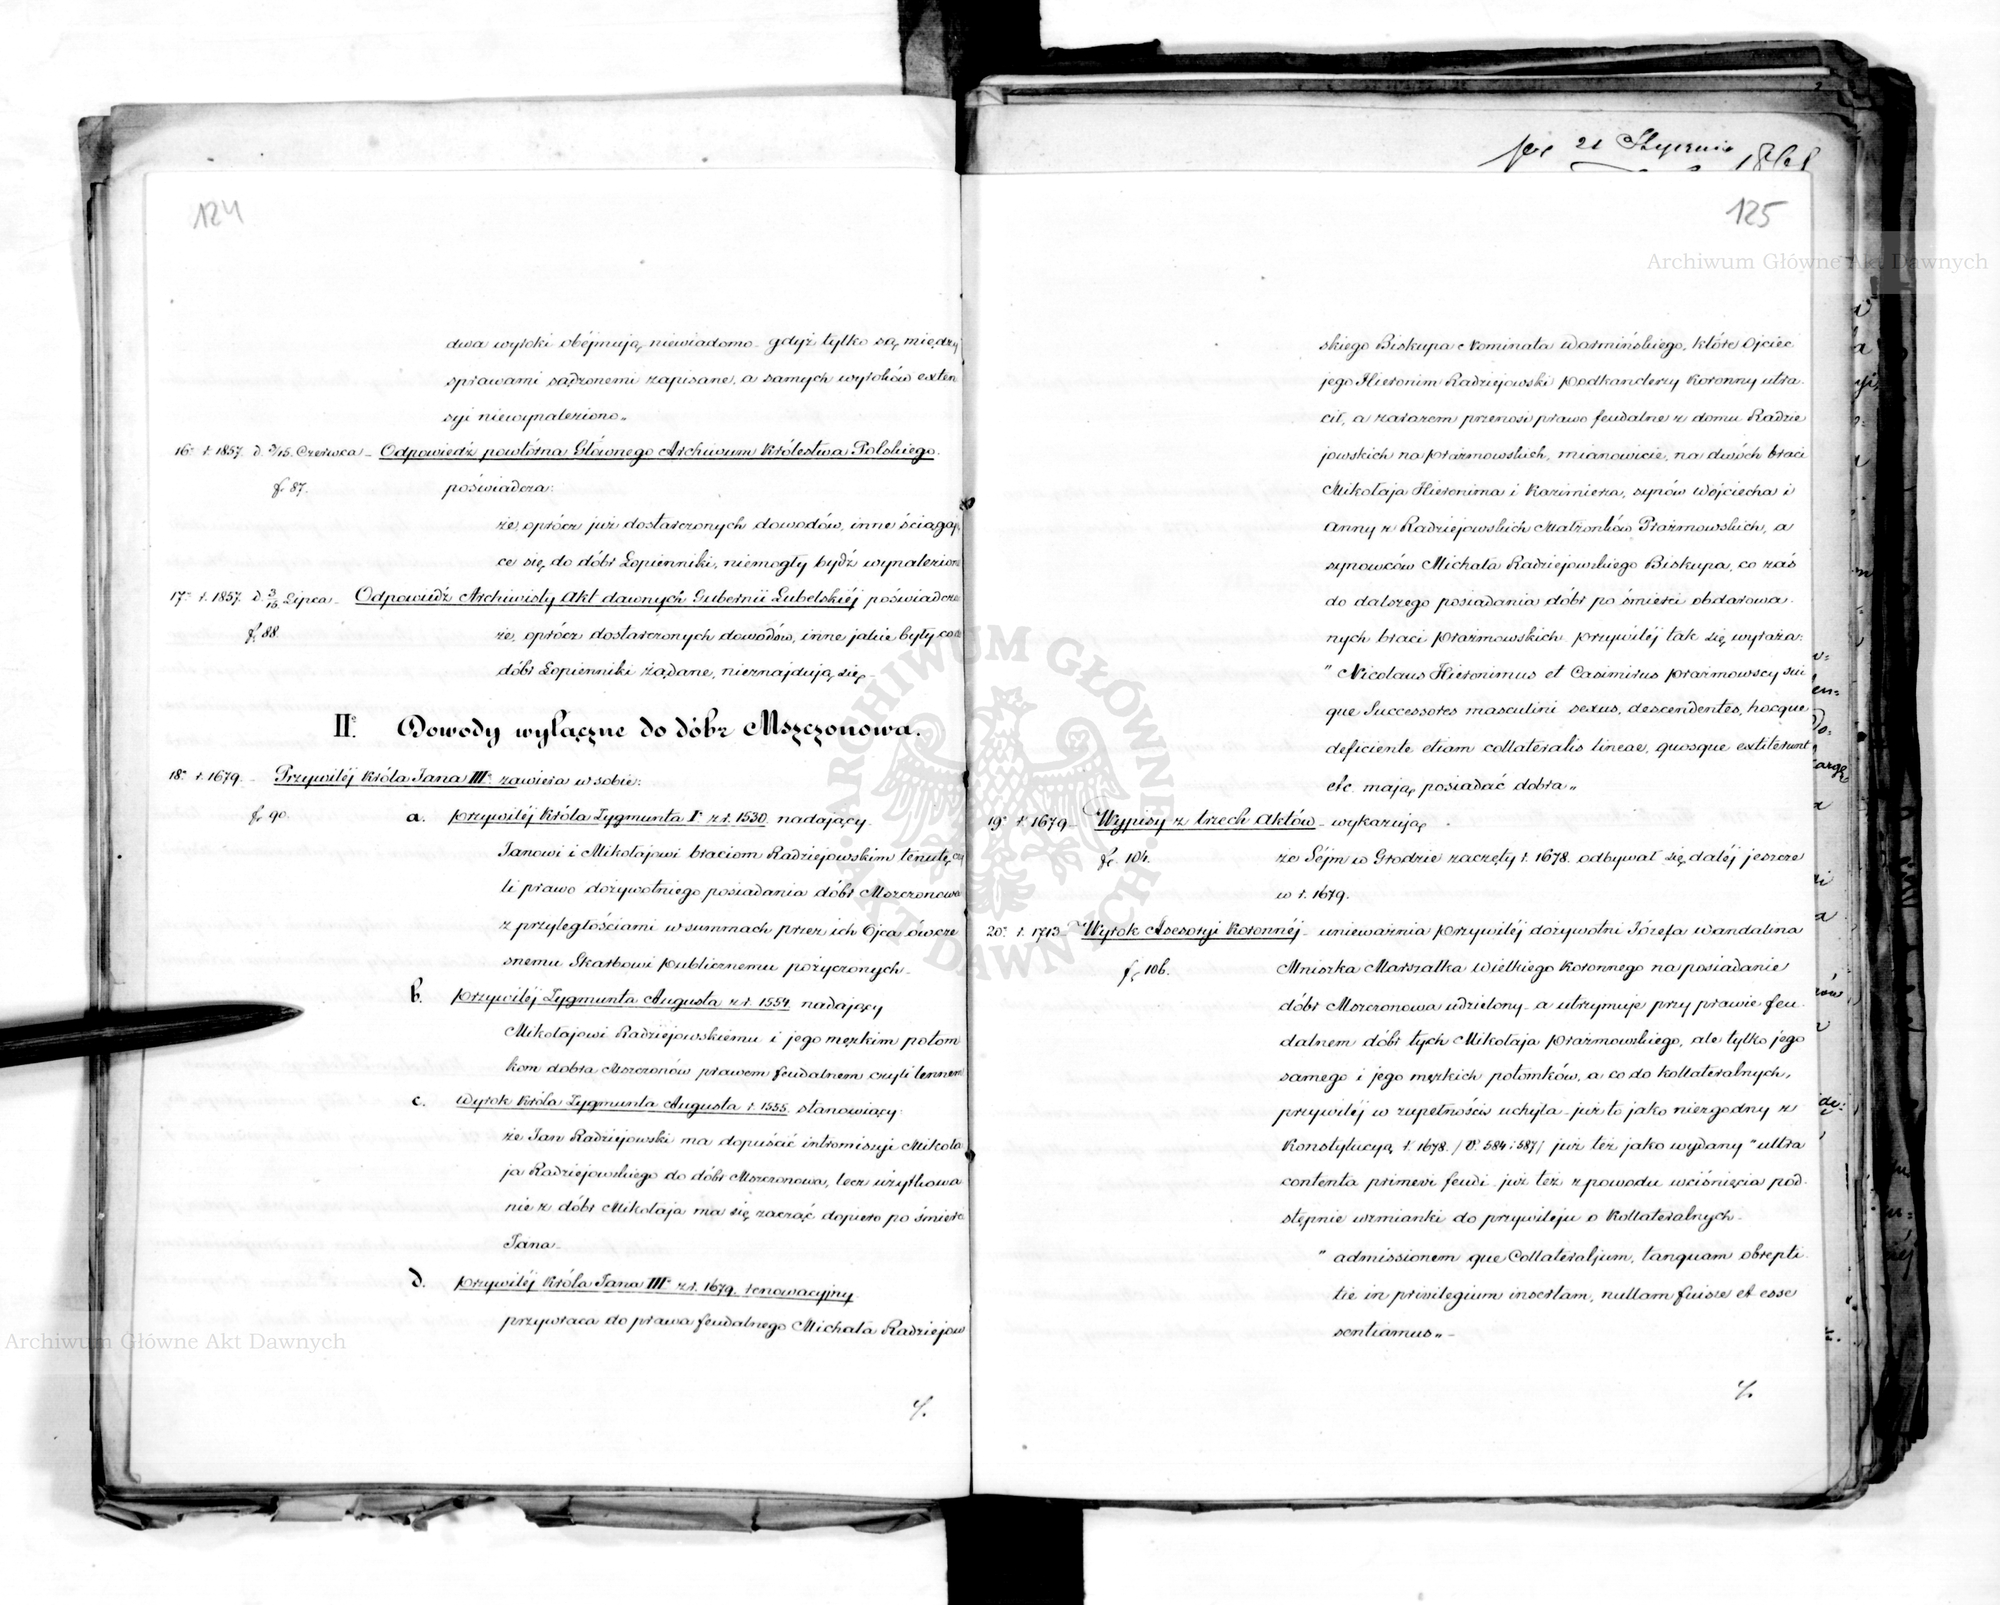 124
dwa wyroki obéjmują niewiadomo gdyż tylko są między
sprawami sądzonemi zapisane, a samych wyroków exten
syi niewynaleziono„
16º r. 1857. d. 3/15. Czerwca - Odpowiedź powtórna Głównego Archiwum Królestwa Polskiego.
f. 87. poświadcza:
że, oprócz już dostarczonych dowodów, inne ściągają
ce się, do dóbr Łopienniki, niemogły bydź wynalezione
17º r. 1857. d. 3/15 Lipca - Odpowiedź Archiwisty Akt dawnych Gubernii Lubelskiéj poświadcza
f. 88. że, oprócz dostarczonych dowodów, inne jakie były co do
dóbr Łopienniki żądane, nieznajdują się -
IIº Dowody wyłączne do dóbr Mszczonowa.
18º r. 1679. - Przywiléj Króla Jana IIIº zawiera w sobie:
f. 90. a. Przywiléj Króla Zygmunta Iº z r. 1530. nadający
Janowi i Mikołajowi braciom Radziejowskim tenutę, czy
li prawo dożywotniego posiadania dóbr Mszczonowa
z przyległościami w summach przez ich Ojca ówcze
snemu Skarbowi Publicznemu pożyczonych -
b. Przywiléj Zygmunta Augusta z r. 1554. nadający
Mikołajowi Radziejowskiemu i jego męzkim potom
kom dobra Mszczonów prawem feudalnem czyli lennem
c. Wyrok Króla Zygmunta Augusta r. 1555. stanowiący
że Jan Radziejowski ma dopuścić intromissyi Mikoła
ja Radziejowskiego do dóbr Mszczonowa, lecz użytkowa
nie z dóbr Mikołaja ma się zacząć dopiero po śmierci
Jana -
d. Przywiléj Króla Jana IIIº z r. 1679. renowacyjny
przywraca do prawa feudalnego Michała Radziejow
21 Stycznia
125
skiego Biskupa Nominata Warmińskiego, które Ojciec
jego Hieronim Radziejowski Podkanclerzy Koronny utra
cił, a zarazem przenosi prawo feudalne z domu Radzie
jowskich na Prażmowskich, mianowicie, na dwóch braci
Mikołaja Hieronima i Kazimierza, synów Wojciecha i
Anny z Radziejowskich Małżonków Prażmowskich, a
synowców Michała Radziejowskiego Biskupa, co zaś
do dalszego posiadania dóbr po śmierci obdarowa
nych braci Prażmowskich Przywiléj tak się wyraża:
"Nicolaus Hieronimus et Casimirus Prażmowscy sui
que Successores masculini sexus, descendentes, hocque
deficiente etiam collateralis lineae, quosque extiterunt
etc. mają posiadać dobra„
19º r. 1679. - Wypisy z trzech Aktów - wykazują
f. 104. że Séjm w Grodzie zaczęty r. 1678. odbywał się daléj jeszcze
w r. 1679.
20º r. 1713 - Wyrok Asesoryi Koronnéj - unieważnia Przywiléj dożywotni Józefa Wandalina
f. 106. Mniszka Marszałka Wielkiego Koronnego na posiadanie
dóbr Mszczonowa udzielony - a utrzymuje przy prawie feu
dalnem dóbr tych Mikołaja Prażmowskiego, ale tylko jego
samego i jego męzkich potomków, a co do kollateralnych,
przywiléj w zupełności uchyla - już to jako niezgodny z
Konstytucyą r. 1678. /V. 584 i 587/ już też jako wydany "ultra
contenta primevi feudi - już też z powodu wciśnięcia pod
stępnie wzmianki do przywileju o Kollateralnych -
"admissionem que Collateralium, tanquam obrepti
tie in privilegium insertam, nullam fuisse et esse
sentiamus„ -
Archiwum Główne Akt Dawnych
Archiwum Główne Akt Dawnych
ARCHIWUM GŁÓWNE AKT DAWNYCH